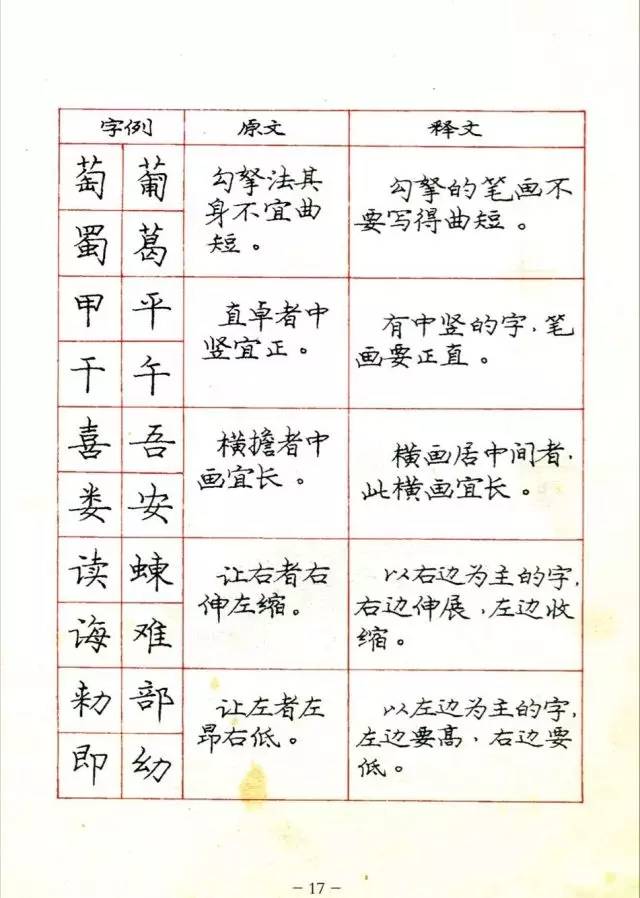 字例 原文 释文
萄 葡
蜀 葛
勾拏法其
身不宜曲
短。
勾拏的笔画不
要写得曲短。
甲 平
干 午
直卓者中
竖宜正。
有中竖的字，笔
画要正直。
喜 吾
娄 安
横擔者中
画宜长。
横画居中间者，
此横画宜长。
读 蝀
诲 难
让右者右
伸左缩。
以右边为主的字，
右边伸展，左边收
缩。
勑 部
即 幼
让左者左
昂右低。
以左边为主的字，
左边要高，右边要
低。
- 17 -